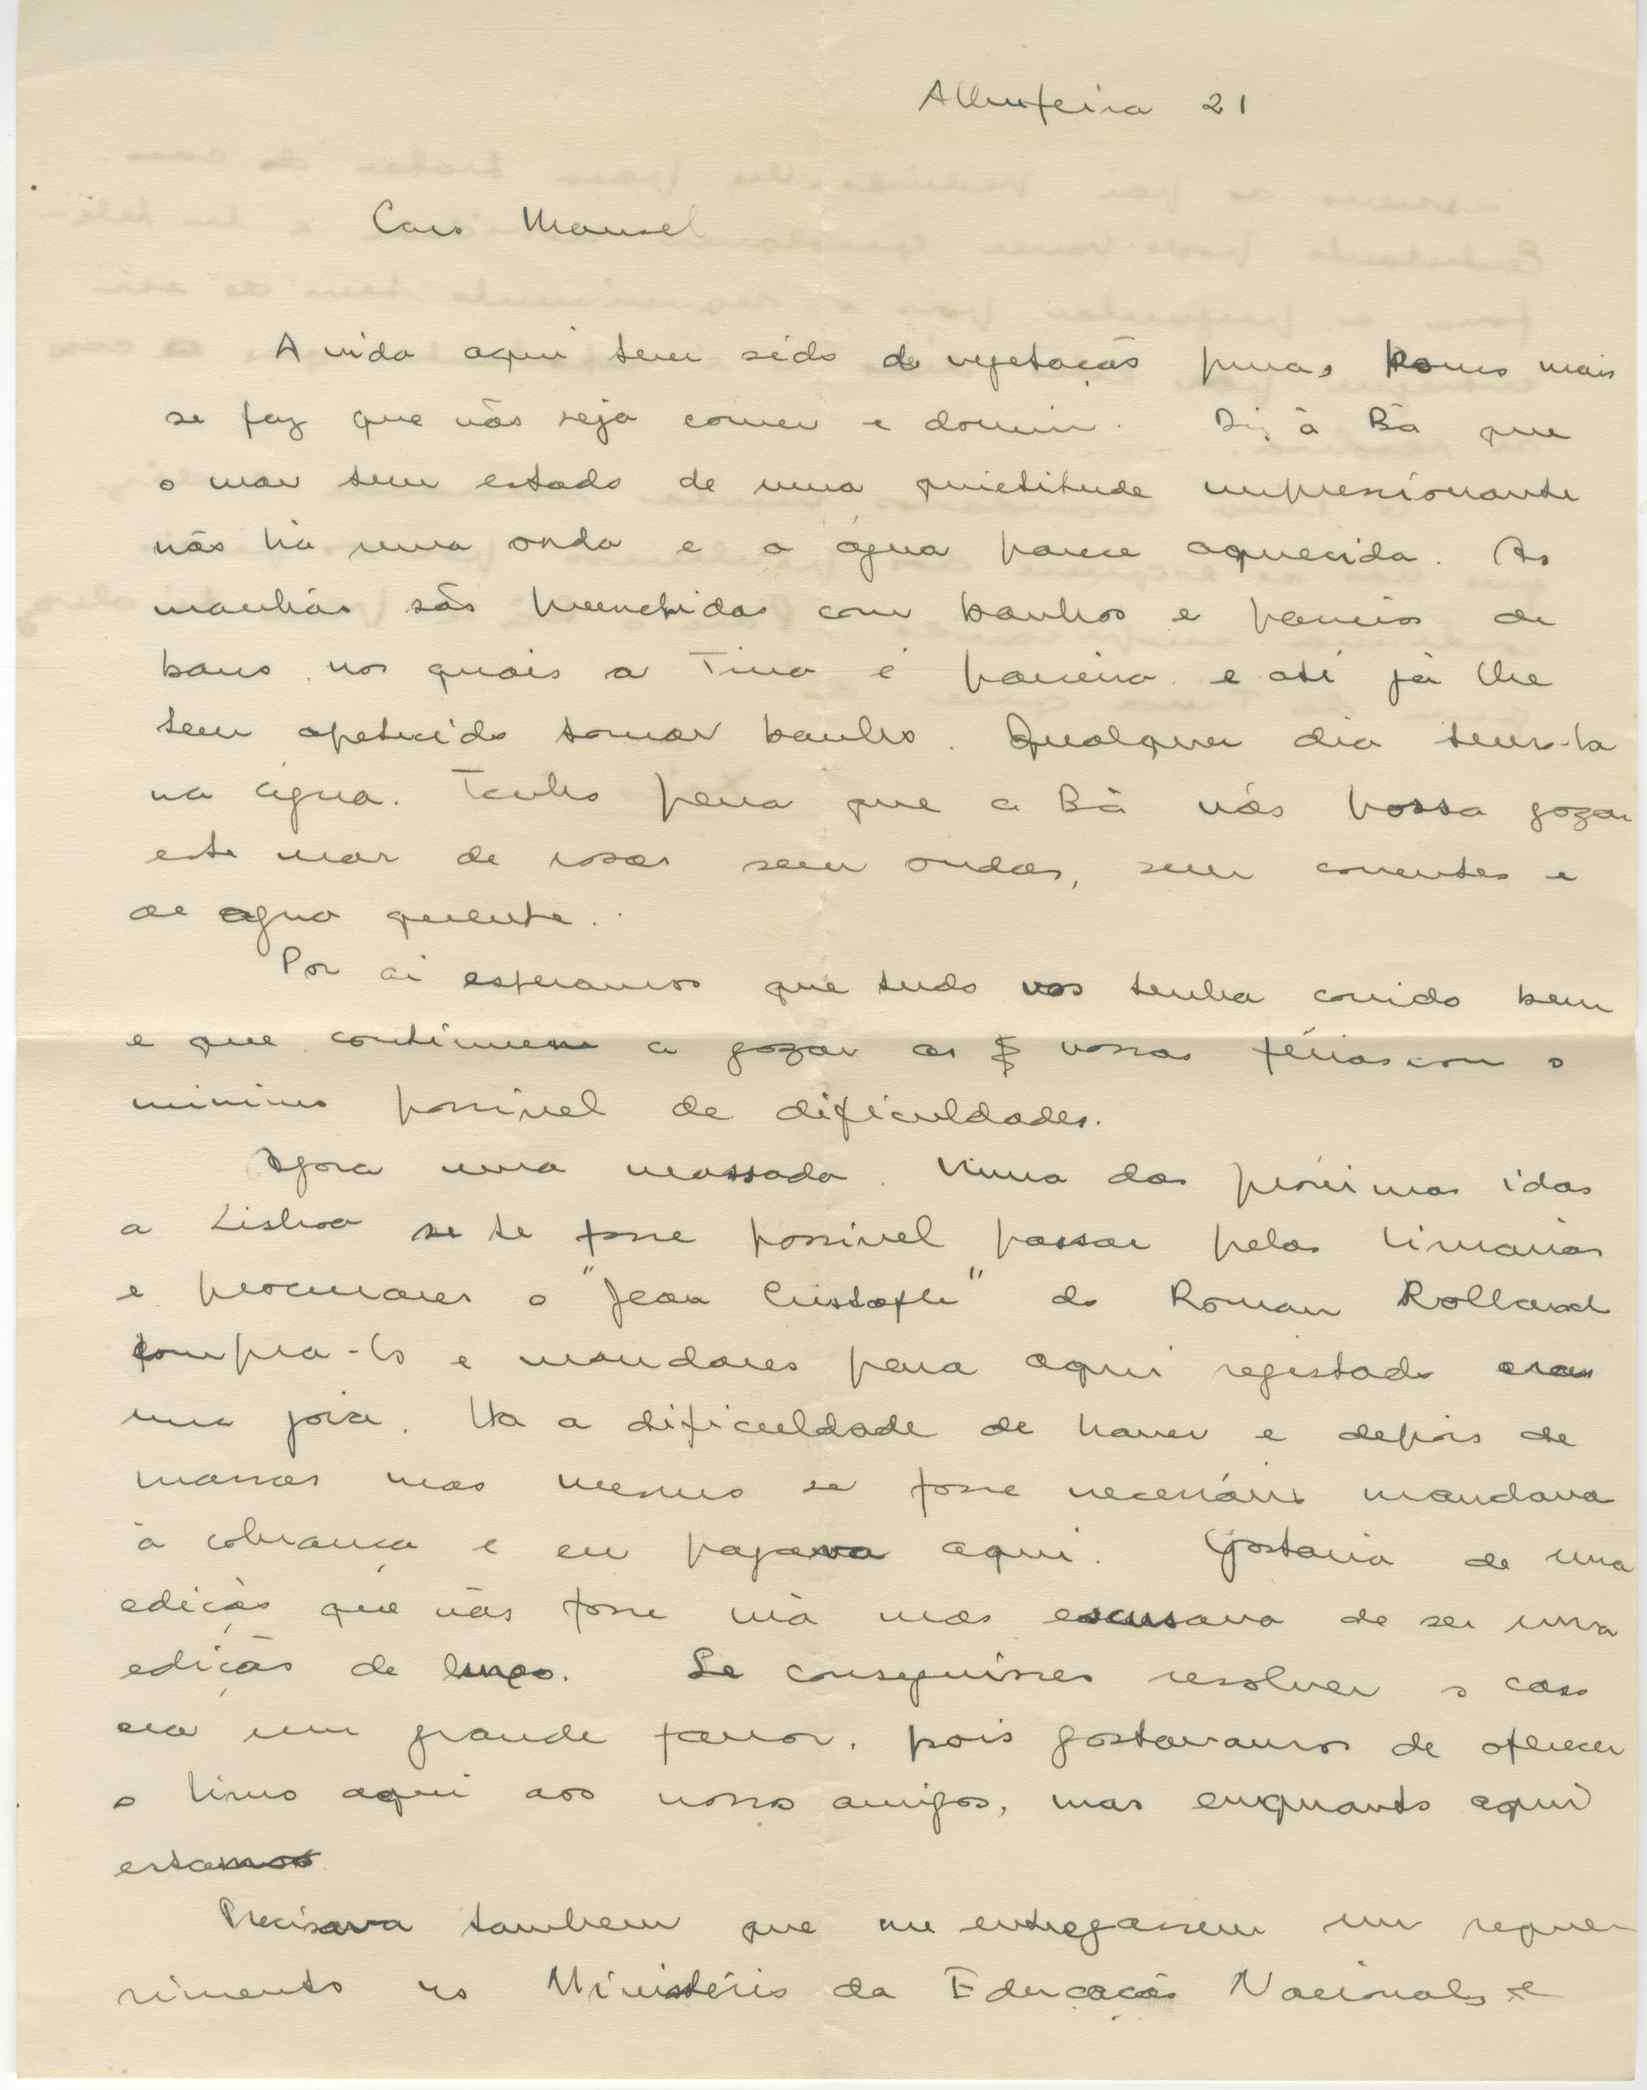 Albufeira 21
Caro Manuel
A vida aqui tem sido de vegetação pura, pouco mais
se faz que não seja comer e dormir. Diz à Bá que
o mar tem estado de uma quietitude impressionante
não há uma onda e a água parece aquecida. As
manhãs são preenchidas com banhos e passeios de
barco nos quais a Tina é parceira e até já lhe
tem apetecido tomar banho. Qualquer dia temo-la
na água. Tenho pena que a Bá não possa gozar
este mar de rosas sem ondas, sem correntes e
de agua quente.
Por aí esperamos que tudo vos tenha corrido bem
e que continuem a gozar as vossas férias com o
minimo possivel de dificuldades.
Agora uma massada. Numa das próximas idas
a Lisboa se te fosse possivel passar pelas livrarias
e procurares o "Jean Cristophe" do Roman Rolland
compra-lo e mandares para aqui registado eras
uma joia. Ha a dificuldade de haver e depois de
massas mas mesmo se fosse necessário mandava
à cobrança e eu pagava aqui. Gostaria de uma
edição que não fosse má mas escusava de ser uma
edição de luxo. Se conseguisses resolver o caso
era um grande favor, pois gostavamos de oferecer
o livro aqui aos nossos amigos, mas enquanto aqui
estamos
Precisava tambem que me entregassem um reque-
rimento no Ministério da Educação Nacional, e